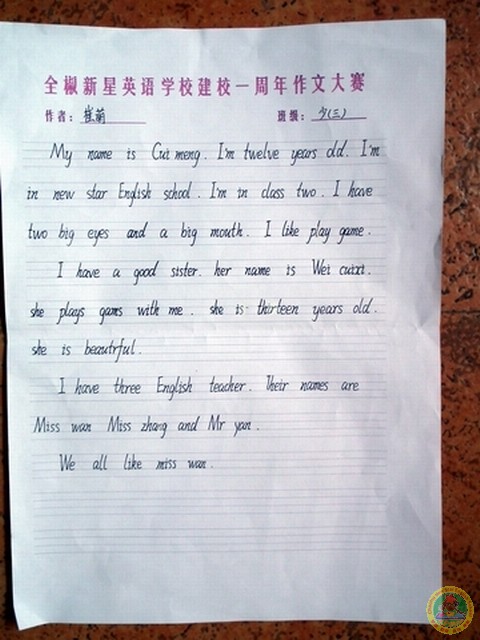 全椒新星英语学校建校一周年作文大赛
作者：崔萌 班级：少(三)
My name is Cui meng. I'm twelve years old. I'm
in new star English school. I'm in class two. I have
two big eyes and a big mouth. I like play game.
I have a good sister. her name is Wei cuixi.
she plays gams with me. she is thirteen years old.
she is beautrful.
I have three English teacher. Their names are
Miss wan Miss zhang and Mr yan.
We all like miss wan.